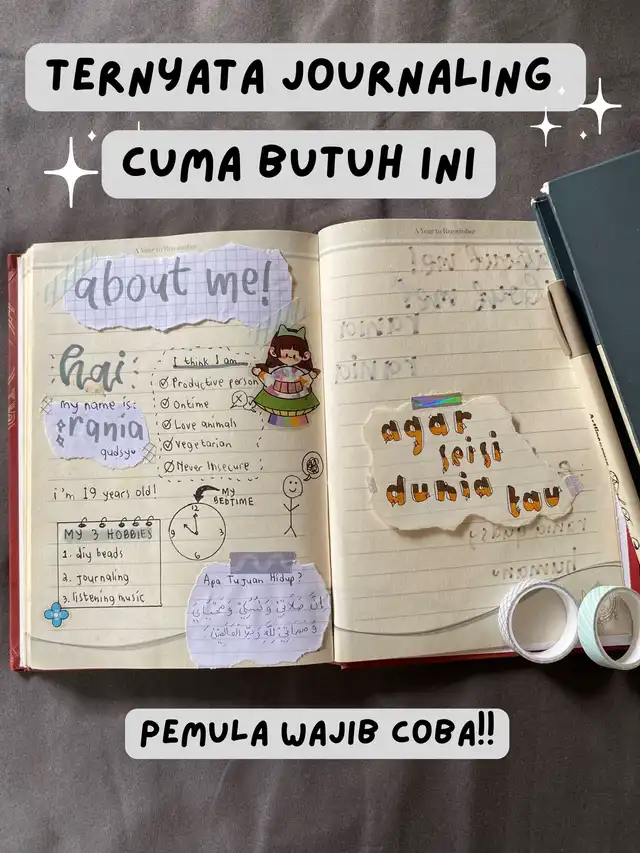 TERNYATA JOURNALING
CUMA BUTUH INI
A Year to Remember
about me!
hai
my name is:
rania
qudsy
I think I am
Productive person
Ontime
Love animals
Vegetarian
Never Insecure
i'm 19 years old!
MY
BEDTIME
12
9
3
6
MY 3 HOBBIES
1. diy beads
2. journaling
3. listening music
Apa Tujuan Hidup?
إِنَّ صَلَاتِيْ وَنُسُكِيْ وَمَحْيَايَ
وَمَمَاتِيْ لِلّٰهِ رَبِّ الْعَالَمِيْنَ
A Year to Remember
agar
seisi
dunia tau
PEMULA WAJIB COBA!!